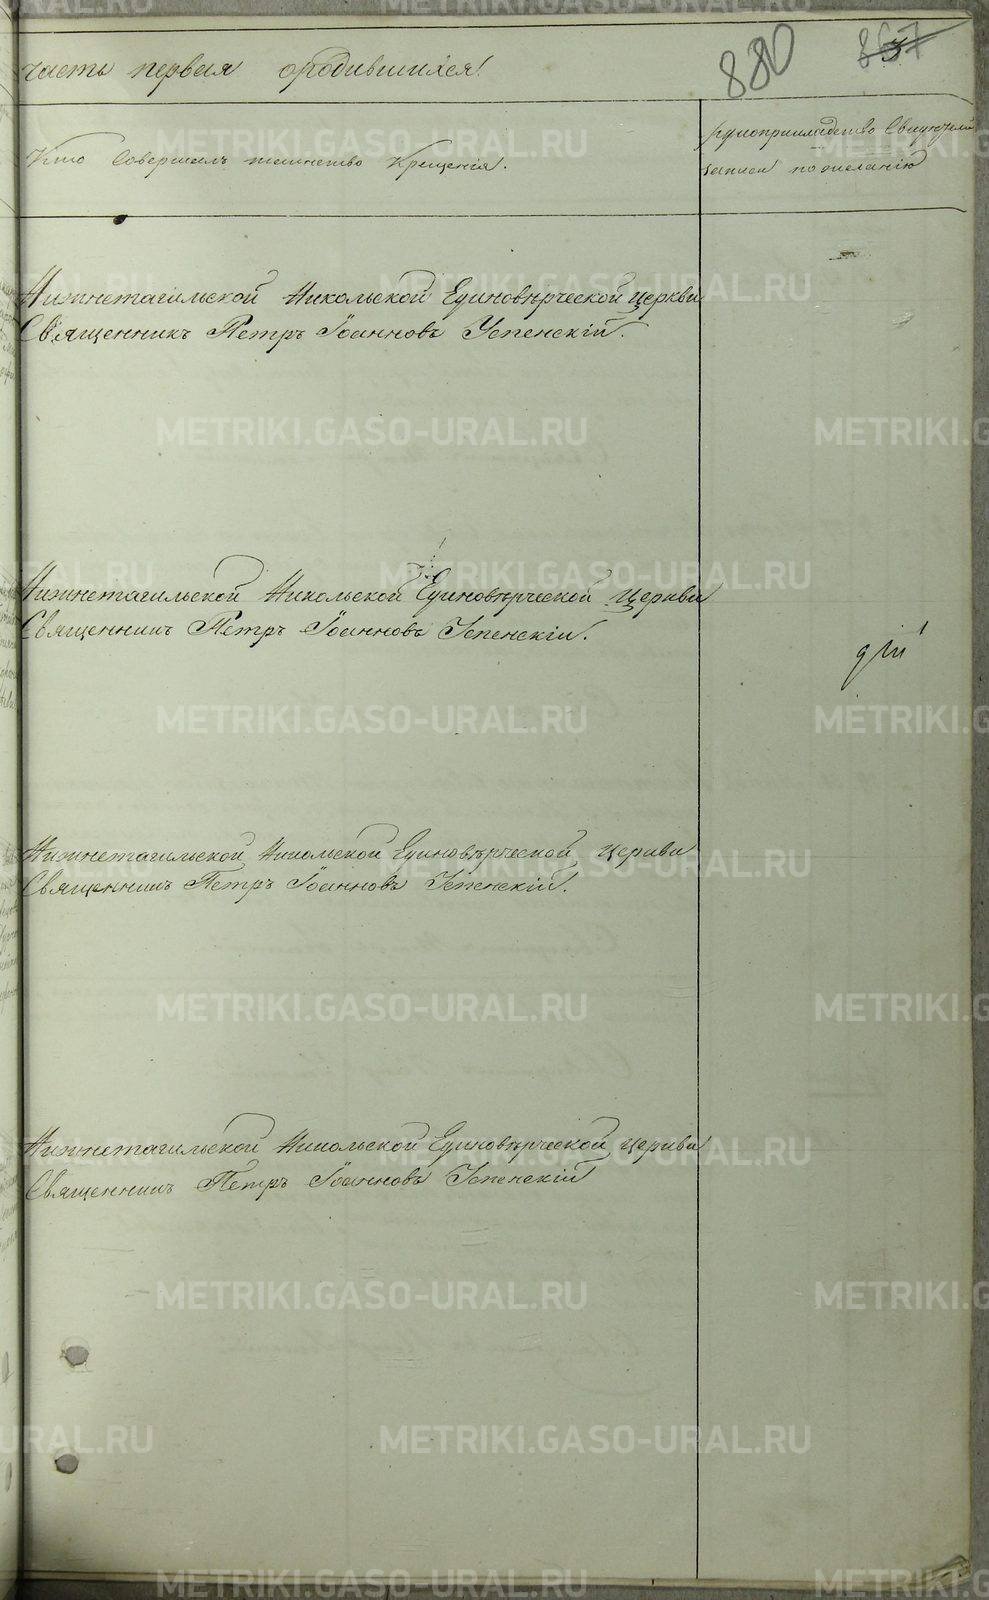 часть первая о родившихся.
880
867
3
Кто Совершалъ таинство Крещенія.
рукоприкладство Свидѣтелей
записи по желанію
Нижнетагильской Никольской Единовѣрческой Церкви
Священникъ Петръ Іоанновъ Успенскій.
Нижнетагильской Никольской Единовѣрческой Церкви
Священникъ Петръ Іоанновъ Успенскій.
Нижнетагильской Никольской Единовѣрческой Церкви
Священникъ Петръ Іоанновъ Успенскій.
Нижнетагильской Никольской Единовѣрческой Церкви
Священникъ Петръ Іоанновъ Успенскій
METRIKI.GASO-URAL.RU